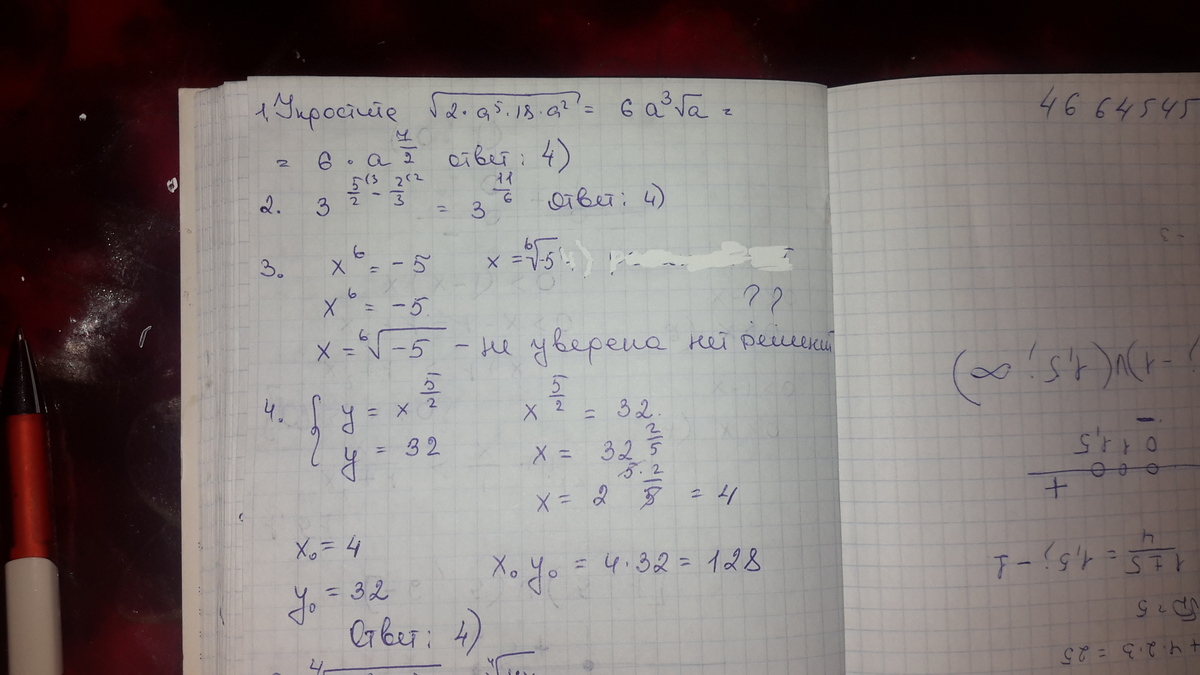 1. Упростите √(2·a⁵·18·a²) = 6a³√a =
= 6·a^(7/2) ответ: 4)
2. 3^(5/2(3 - 2/3(2) = 3^(11/6) Ответ: 4)
3. x⁶ = -5 x = ⁶√-5
??
x⁶ = -5.
x = ⁶√-5 - не уверена нет решений
4. { y = x^(5/2) x^(5/2) = 32.
y = 32 x = 32^(2/5)
x = 2^(5·2/5) = 4
x₀ = 4
x₀y₀ = 4·32 = 128
y₀ = 32
Ответ: 4)
46 64545
-3
; -1)∪(1,5; ∞)
0 1 1,5
+ -
1±5/4 = 1,5; -1
√D = 5
+4·2·3 = 25